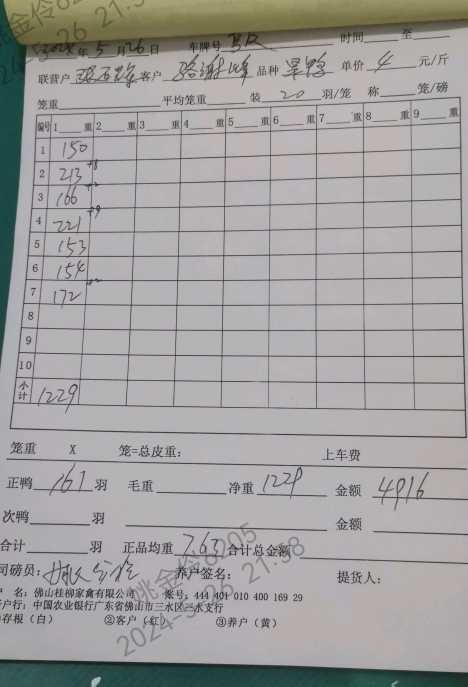 2024年5月26日 车牌号 时间 至
联营户 客户 品种 单价 4 元/斤
笼重 平均笼重 装 20 羽/笼 称 笼/磅
编号 1 重 2 重 3 重 4 重 5 重 6 重 7 重 8 重 9 重
1 150
2 213 +8
3 166
4 221 +9
5 153
6 154
7 172
8
9
10
小计 1229
笼重 X 笼=总皮重: 上车费
正鸭 167 羽 毛重 净重 1229 金额 4916
次鸭 羽 金额
合计 羽 正品均重 7.63 合计总金额
司磅员: 养户签名: 提货人:
名: 佛山桂柳家禽有限公司 账号: 444 401 010 400 169 29
户行: 中国农业银行广东省佛山市三水区三水支行
存板(白) ②客户(红) ③养户(黄)
姚金伶8205
2024-5-26 21:58